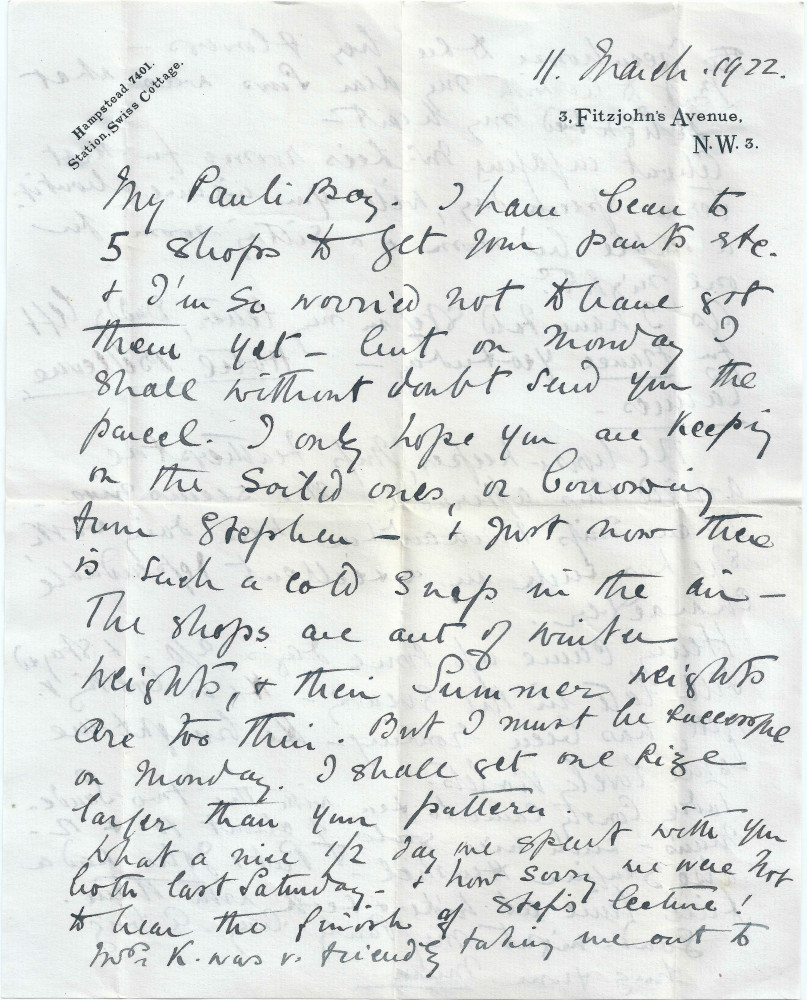 Hampstead 7401.
Station, Swiss Cottage.
11. March. 1922.
3, Fitzjohn's Avenue,
N.W. 3.
My Pauli Boy. I have been to
5 shops to get your pants etc.
& I'm so worried not to have got
them yet – but on Monday I
shall without doubt send you the
parcel. I only hope you are keeping
on the soiled ones, or borrowing
from Stephen – & just now there
is such a cold snap in the air –
The shops are out of winter
weights, & their Summer weights
are too thin. But I must be successful
on Monday. I shall get one size
larger than your pattern.
What a nice 1/2 day we spent with you
both last Saturday – & how sorry we were not
to hear the finish of Step's lecture!
K. was v. friendly taking me out to